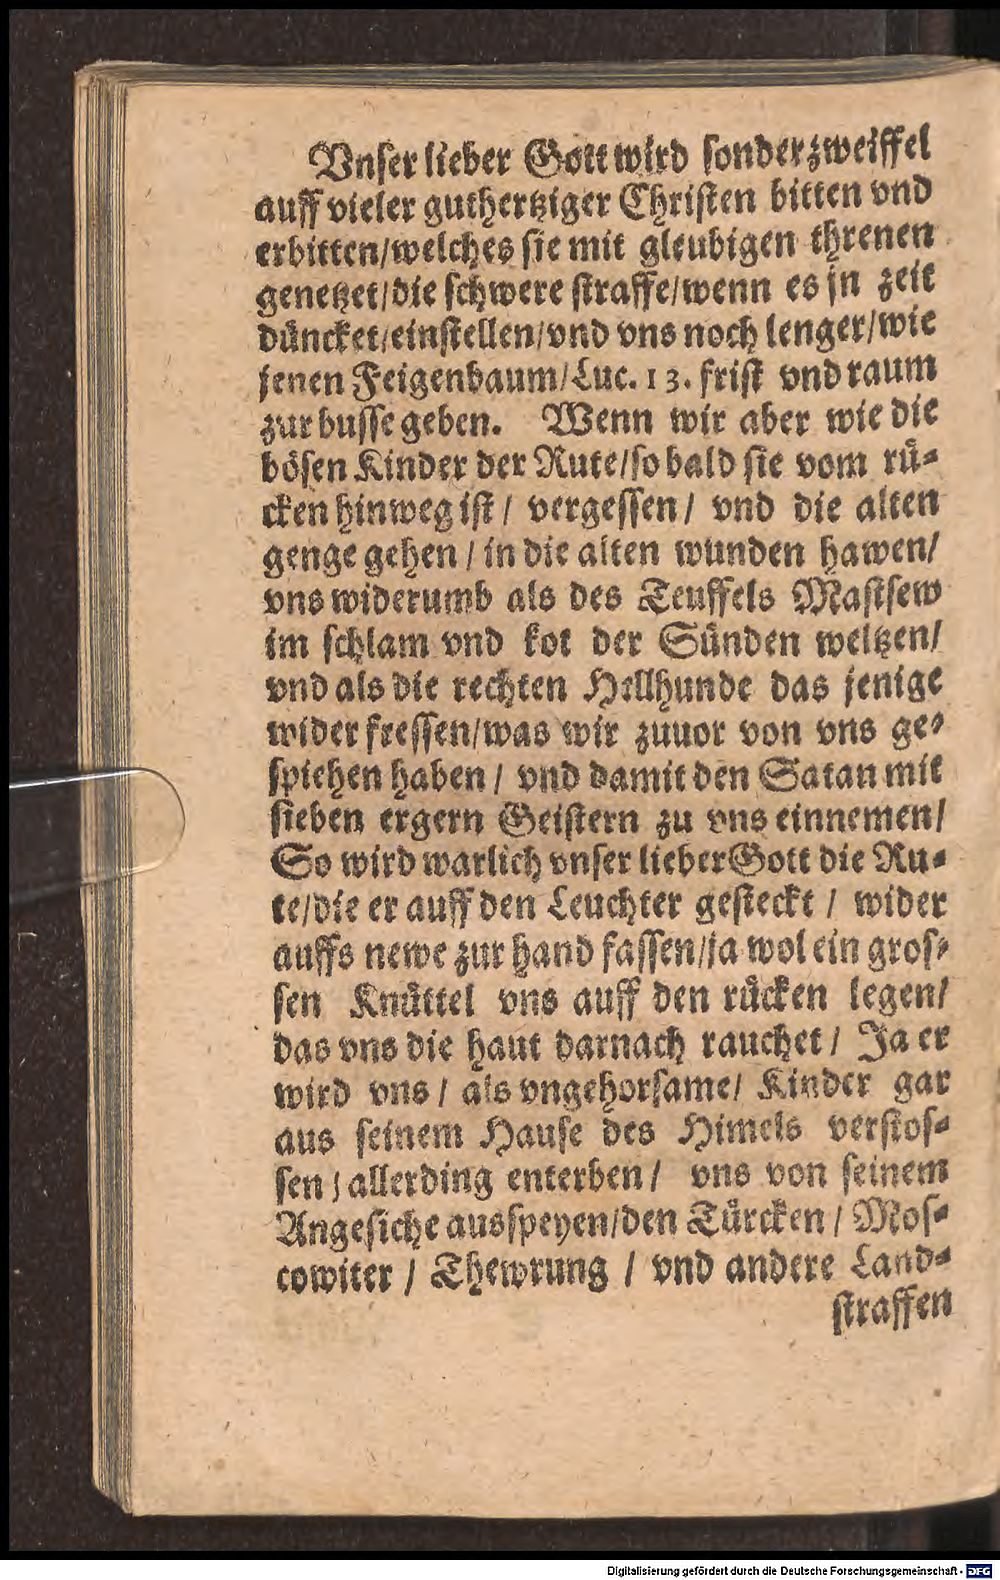 Vnser lieber Gott wird sonder zweiffel
auff vieler guthertziger Christen bitten vnd
erbitten/welches sie mit gleubigen threnen
genetzet/die schwere straffe/wenn es jn zeit
düncket/einstellen/vnd vns noch lenger/wie
jenen Feigenbaum/Luc. 13. frist vnd raum
zur busse geben. Wenn wir aber wie die
bösen Kinder der Rute/so bald sie vom rü-
cken hinweg ist/ vergessen/ vnd die alten
genge gehen/ in die alten wunden hawen/
vns widerumb als des Teuffels Mastsew
im schlam vnd kot der Sünden weltzen/
vnd als die rechten Hellhunde das jenige
wider fressen/was wir zuuor von vns ge-
spiehen haben/ vnd damit den Satan mit
sieben ergern Geistern zu vns einnemen/
So wird warlich vnser lieber Gott die Ru-
te/die er auff den Leuchter gesteckt/ wider
auffs newe zur hand fassen/ja wol ein gros-
sen Knüttel vns auff den rücken legen/
das vns die haut darnach rauchet/ Ja er
wird vns/ als vngehorsame/ Kinder gar
aus seinem Hause des Himels verstos-
sen/ allerding enterben/ vns von seinem
Angesiche ausspeyen/den Türcken/ Mos-
cowiter/ Thewrung/ vnd andere Land-
straffen
Digitalisierung gefördert durch die Deutsche Forschungsgemeinschaft - DFG